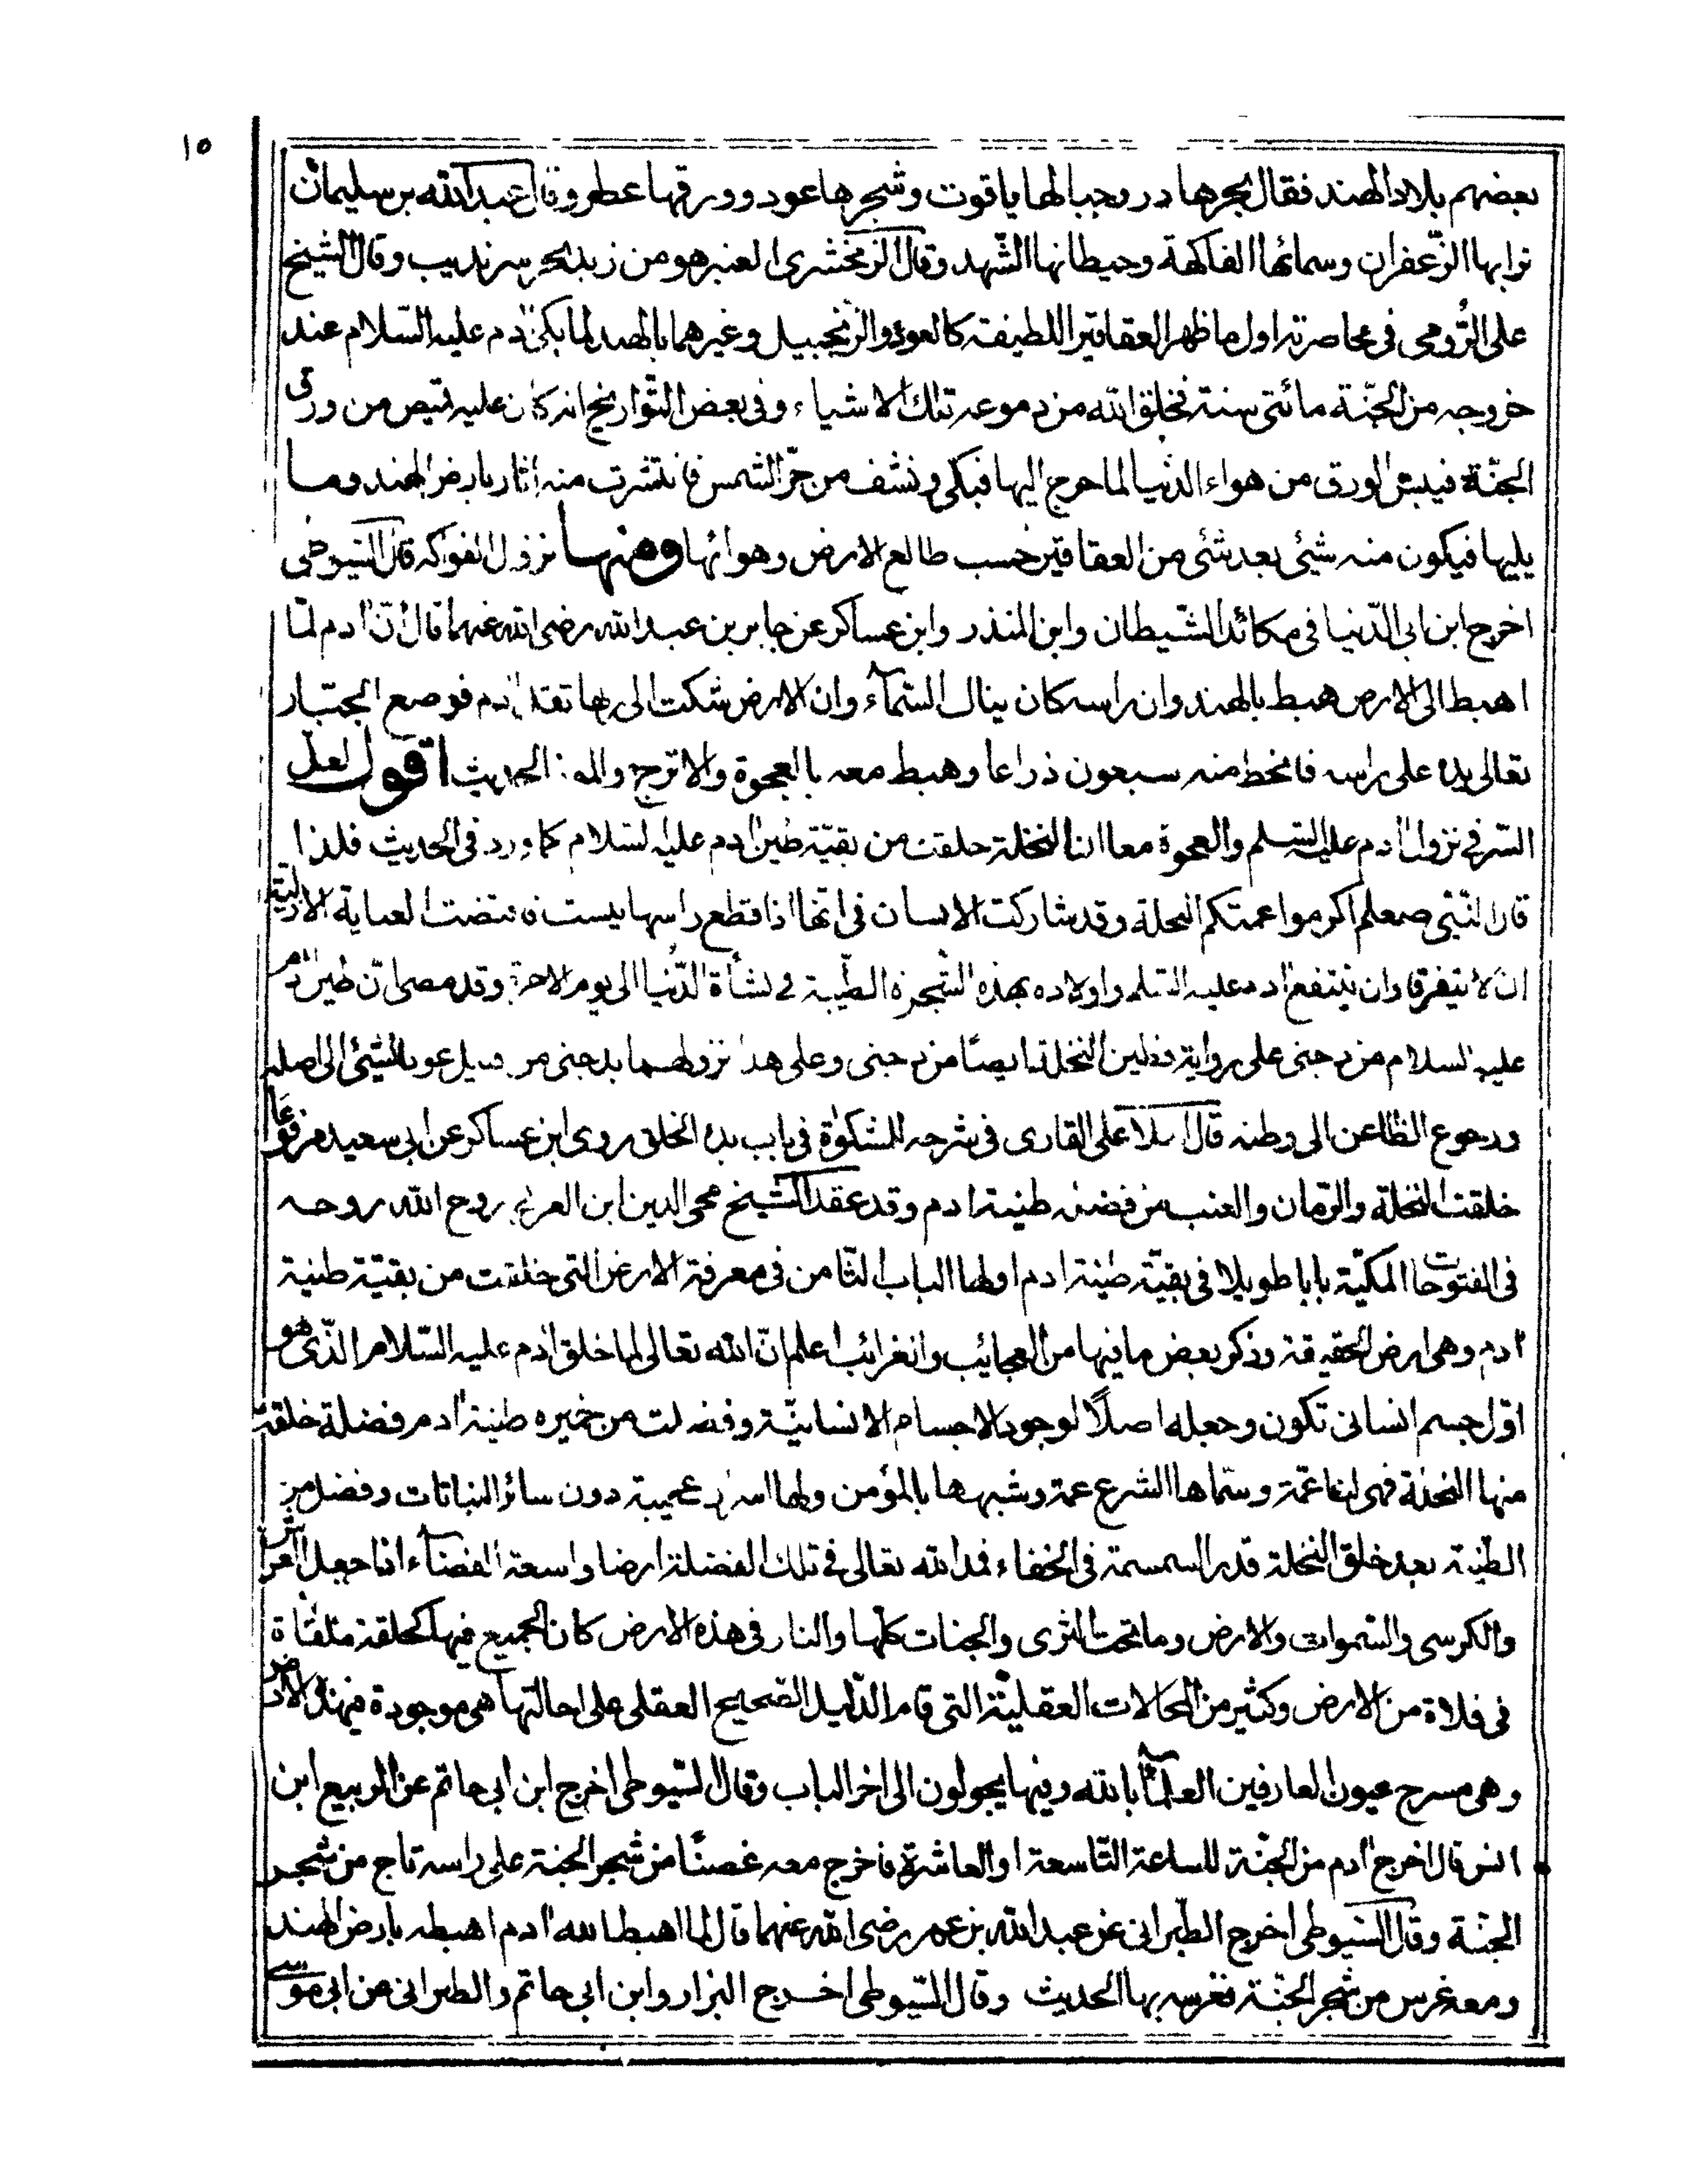 ١٥
بعضهم بلاد الهند فقال بحرها در وجبالها ياقوت وشجرها عود وورقها عطر وقال عبد الله بن سليمان
ترابها الزّعفران وسمائها الفاكهة وحيطانها الشّهد وقال الزمخشري العنبر هو من زبد بحر سرنديب وقال الشيخ
علي الرُّومي في محاضرته اول ما ظهر العقاقير اللطيفة كالعود والزنجبيل وغيرهما بالهند لما بكى ادم عليه السّلام عند
خروجه من الجنّة مائتي سنة فخلق الله من دموعه تلك الاشياء وفي بعض التّواريخ انه كان عليه قميص من ورق
الجنّة فيبس الورق من هواء الدّنيا لما خرج اليها فبكى ونشف من حرّ الشمس فانتشرت منه اثار بارض الهند وما
يليها فيكون منه شيئ بعد شئ من العقاقير حسب طالع الارض وهوائها ومنها نزول الفواكه قال السّيوطي
اخرج ابن ابي الدّنيا في مكائد الشّيطان وابن المنذر وابن عساكر عن جابر بن عبد الله رضي الله عنهما قال انّ ادم لمّا
اهبط الى الارض هبط بالهند وان راسه كان ينال السّماء وان الارض شكت الى ربها ثقل ادم فوضع الجبّار
تعالى يده على راسه فانحط منه سبعون ذراعا وهبط معه بالعجوة والاترج والموز الحديث اقول لعلّ
السّر في نزول ادم عليه السّلم والعجوة معا ان النخلة خلقت من بقيّة طين ادم عليه السّلام كما ورد في الحديث فلذا
قال النّبي صعلم اكرموا عمتكم النخلة وقد شاركت الانسان في انّها اذا قطع راسها يبست فاقتضت العناية الازليّة
ان لا يتفرقا وان ينتفع ادم عليه السّلم واولاده بهذه الشّجرة الطّيبة في نشأة الدُّنيا الى يوم الاخرة وقد مضى انّ طين ادم
عليه السلام من دجنى على رواية فطين النخلة ايضًا من دجنى وعلى هذا نزولهما بدجنى من قبيل عود الشّيئ الى اصله
ورجوع الظّاعن الى وطنه قال ملا علي القاري في شرحه للمشكوٰة في باب بدء الخلق روى ابن عساكر عن ابي سعيد مرفوعًا
خلقت النخلة والرّمان والعنب من فضل طينة ادم وقد عقد الشّيخ محي الدين ابن العربي روح الله روحه
في الفتوحات المكيّة بابا طويلا في بقيّة طينة ادم اولها الباب الثّامن في معرفة الارض التي خلقت من بقيّة طينة
ادم وهي ارض الحقيقة وذكر بعض ما فيها من العجايب والغرائب اعلم انّ الله تعالى لما خلق ادم عليه السّلام الذّي هو
اوّل جسم انساني تكون وجعله اصلًا لوجود الاجسام الانسانيّة وفضلت من خميره طينة ادم فضلة خلقت
منها النخلة فهي لنا عمّة وسمّاها الشرع عمة وشبهها بالمؤمن ولها اسرار عجيبة دون سائر النباتات وفضل من
الطّينة بعد خلق النخلة قدر السمسمة في الخفاء فمد الله تعالى في تلك الفضلة ارضا واسعة الفضاء اذا جعل العرش
والكرسي والسّموات والارض وما تحت الثرى والجنات كلّها والنار في هذه الارض كان الجميع فيها كحلقة ملقاة
في فلاة من الارض وكثير من المحالات العقليّة التي قام الدّليل الصّحيح العقلي على احالتها هي موجودة في هذه الارض
وهي مسرح عيون العارفين العلماء بالله وفيها يجولون الى اخر الباب وقال السّيوطي اخرج ابن ابي حاتم عن الربيع ابن
انس قال اخرج ادم من الجنّة للساعة التّاسعة او العاشرة فاخرج معه غصنًا من شجر الجنة على راسه تاج من شجر
الجنّة وقال السّيوطي اخرج الطّبراني عن عبد الله بن عمر رضي الله عنهما قال لما اهبط الله ادم اهبطه بارض الهند
ومعه غرس من شجر الجنّة فغرسه بها الحديث وقال السّيوطي اخرج البزار وابن ابي حاتم والطبراني عن ابي موسى